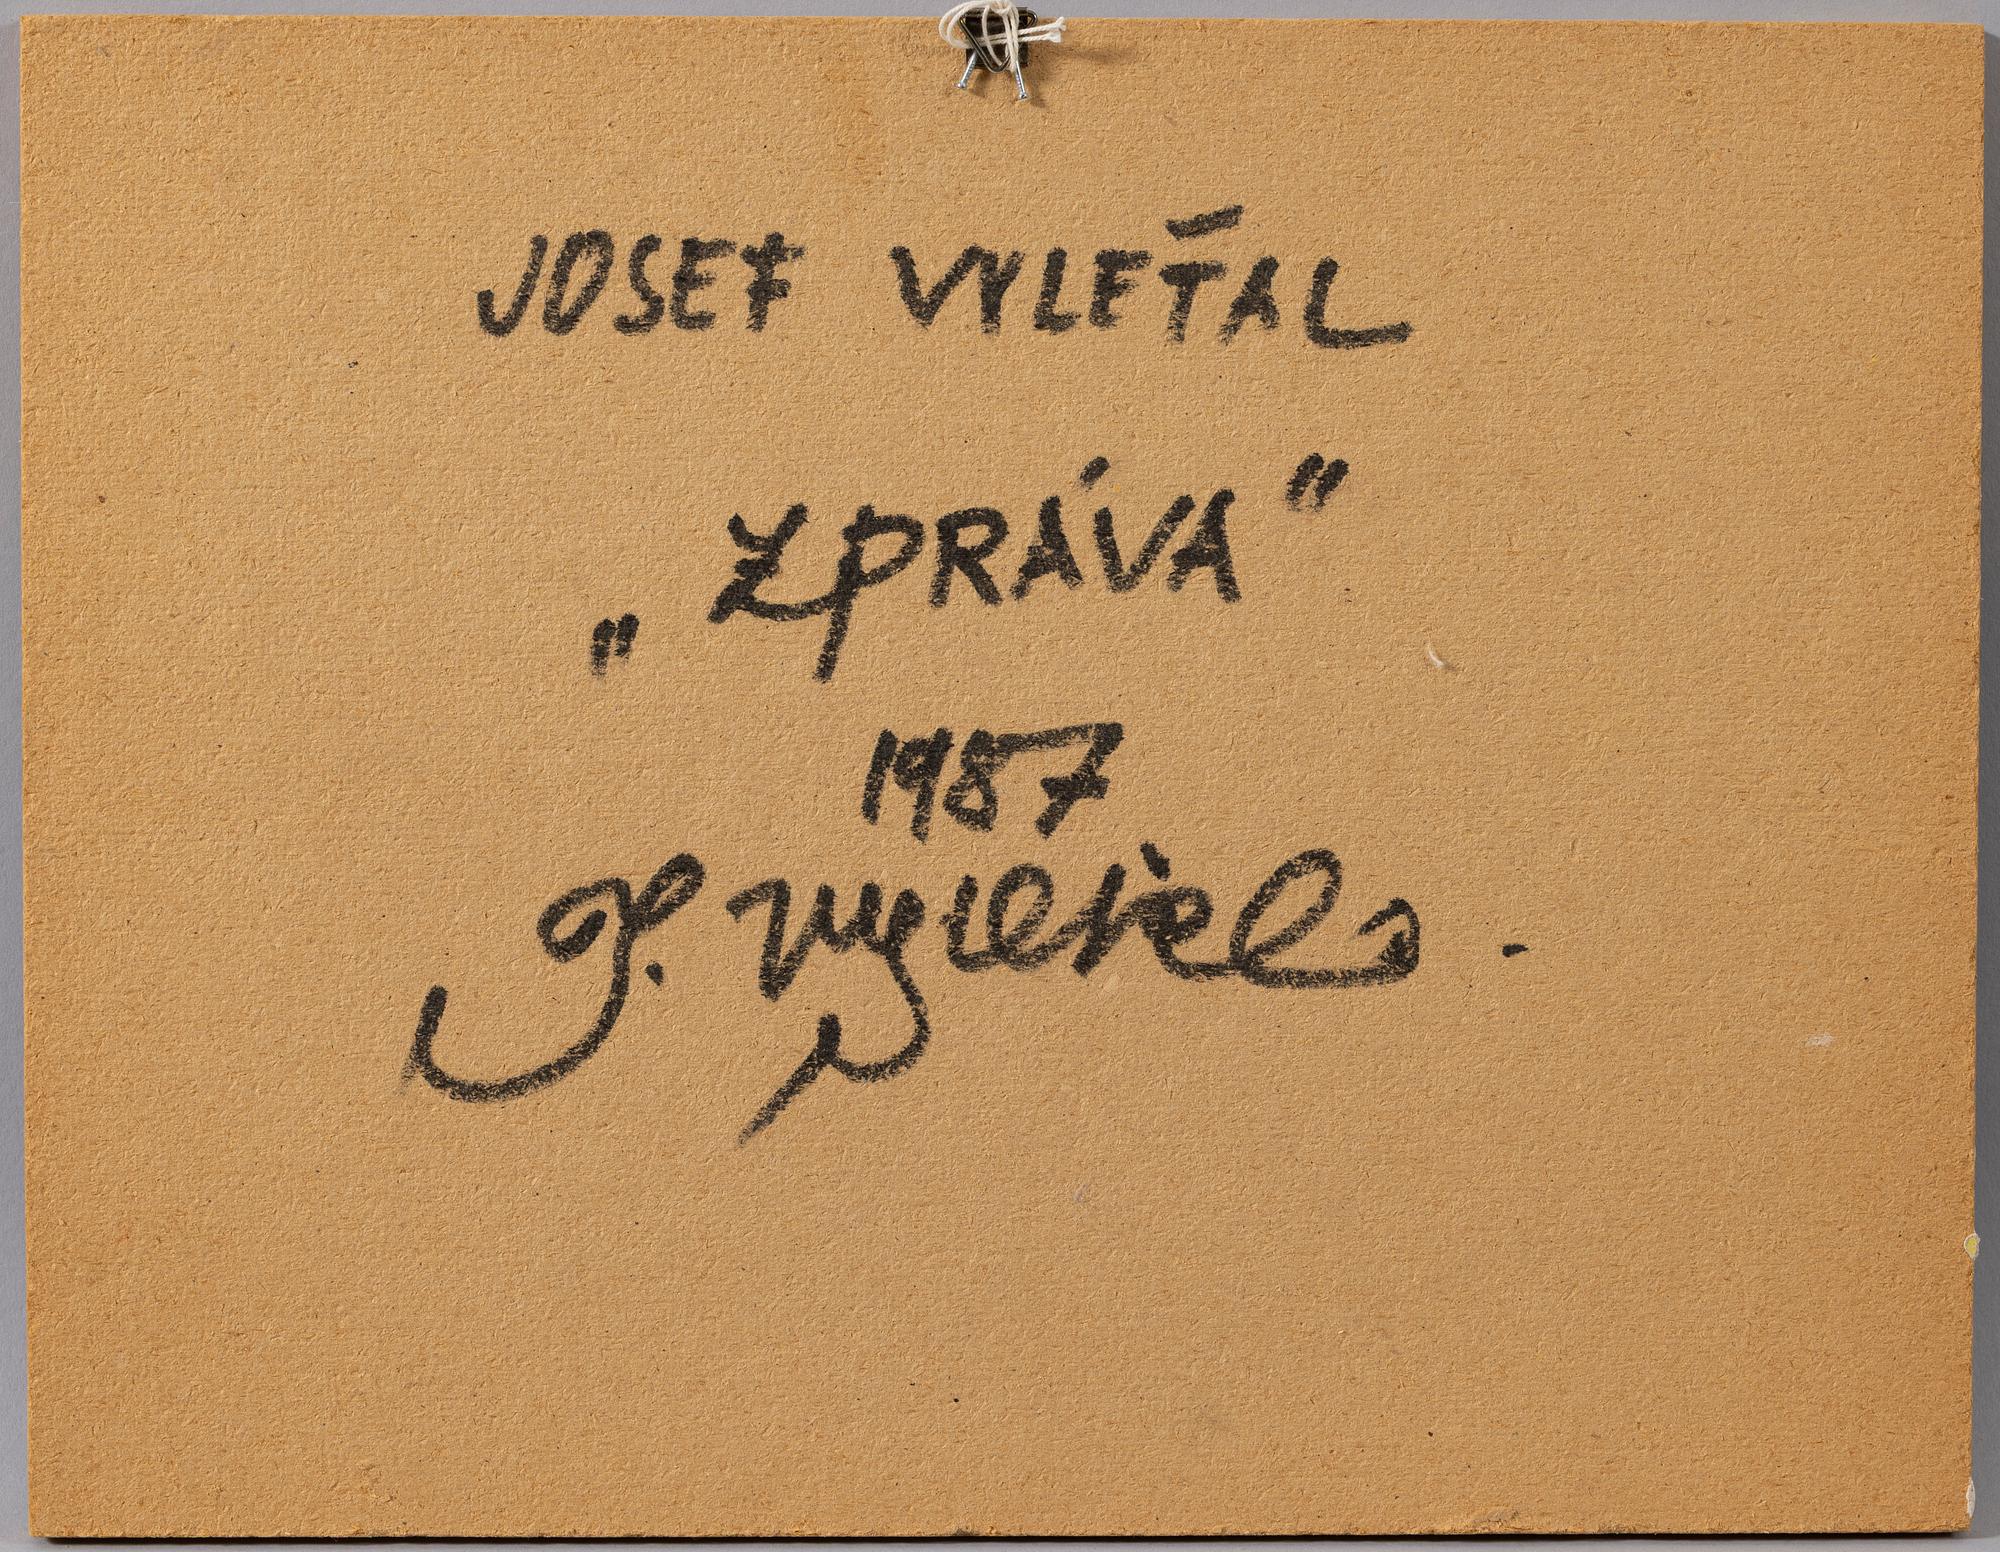 JOSEF VYLEŤAL
„ZPRÁVA"
1987
J. Vyleťal